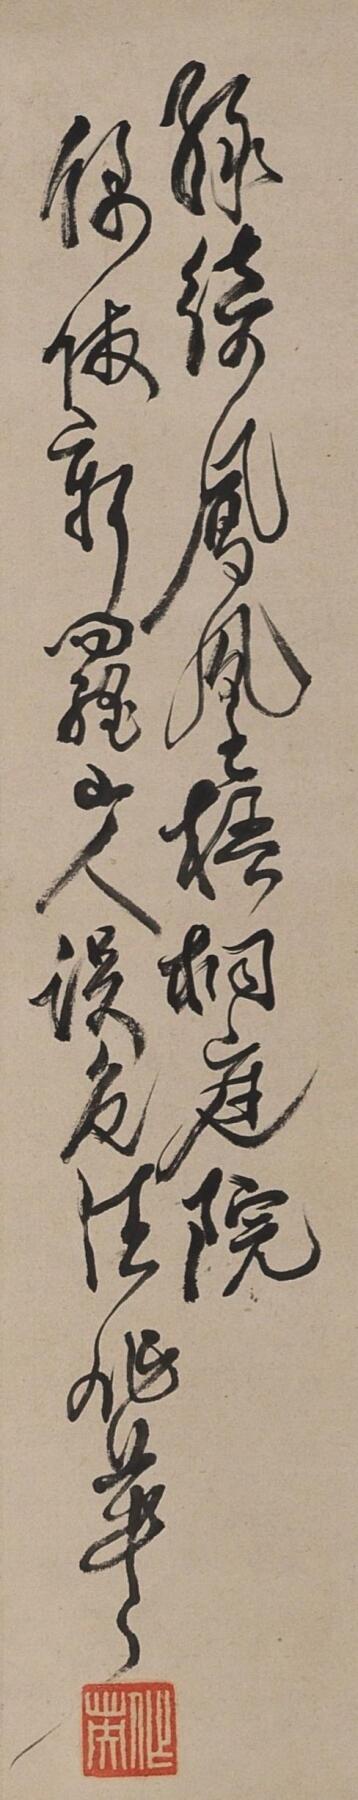 綠綺鳳凰梧桐庭院
偶倣新羅山人設色法